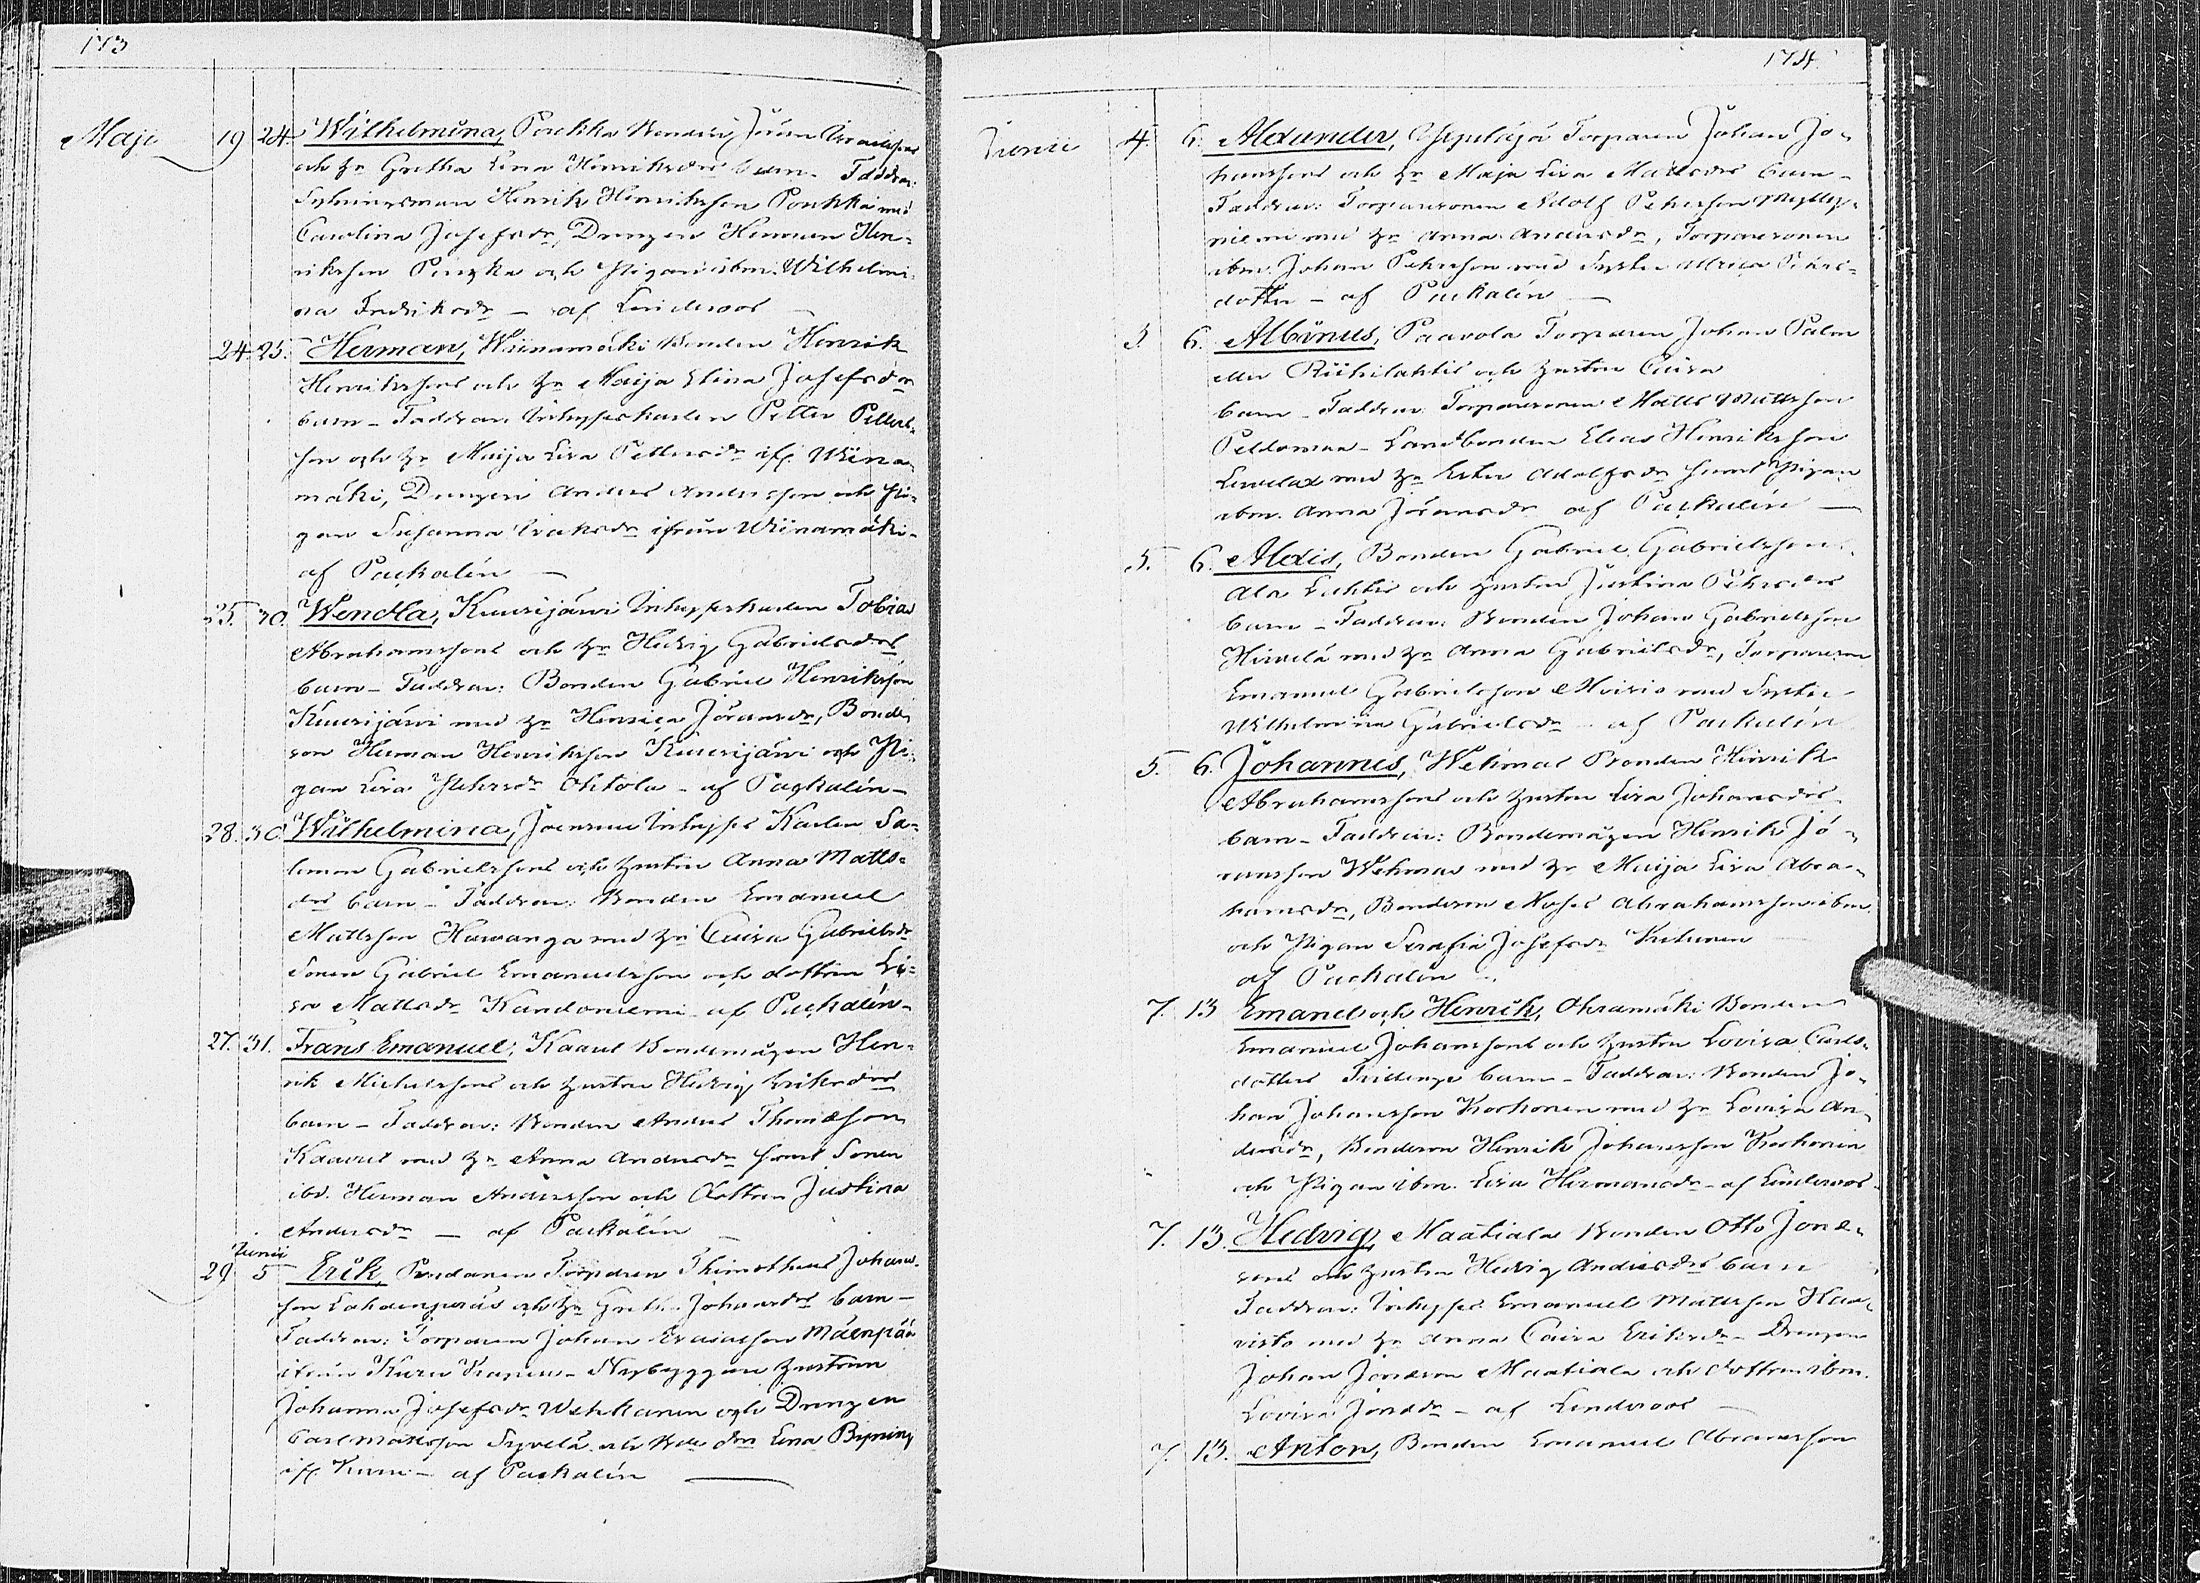 173
Maji 19 24. Wilhelmina, Poukka Bonden Jöran Israelssons
och h. Gretha Lena Henriksdrs barn. Faddrar:
Henrik Henriksson Poukka med
Carolina Josefsdr, Drengen Herman Hen-
riksson och Pigan ibm. Wilhelmi-
na Fredriksdr - af Linderoos
24. 25. Herman, Wiinamäki Bonden Henrik
Henrikssons och h. Maija Stina Josefsdrs
barn - Faddrar: Inhysеskarlen Petter Petters-
son och h. Maija Lisa Pettersdr ifr. Wiina-
mäki, Drengen Anders Andersson och Pi-
gan Susanna Isaksdr ifrån Wiinamäki -
af Packalén
25. 30. Wendla, Kuurijärvi Inhyseskarlen Tobias
Abrahamssons och h. Hedvig Gabrielsdrs
barn - Faddrar: Bonden Gabriel Henriksson
Kuurijärvi med h. Henrica Jöransdr, Bonde-
son Herman Henriksson Kuurijärvi och Pi-
gan Lisa Pehrsdr Ohtola - af Packalén -
28. 30. Wilhelmina, Joensuu Inhyses Karlen Sa-
lomon Gabrielssons och hustru Anna Matts-
drs barn - Faddrar: Bonden Emanuel
Mattsson Hawanga med h. Caisa Gabrielsdr
Sonen Gabriel Emanuelsson och dottren Li-
sa Mattsdr Kandoniemi af Packalén -
27. 31. Frans Emanuel, Kaarus Bondemågen Hen-
rik Michelssons och hustru Hedvig Eriksdrs
barn - Faddrar: Bonden Anders Thomæson
Kaarus med h. Anna Andersdr samt Sonen
ibd. Herman Andersson och Dottren Justina
Andersdr - af Packalén
Junii
29 5 Erik, Torparen Thimotheus Johans-
son Lahdenperäs och h. Greta Johansdrs barn -
Faddrar: Torparen Johan Esaiasson Mäenpää
ifrån Kuru - Nybyggare hustrun
Johanna Josefsdr och Drengen
Carl Mattsson Syvelä och Lena
ifr. Kuru - af Packalén
174
Junii 4 6. Alexander, Torparen Johan Jo-
hanssons och h. Maja Lisa Mattsdrs barn -
Faddrar: Torparesonen Adolf Pehrsson Mylly-
niemi med h. Anna Andersdr, Torparesonen
ibm. Johan Pehrsson med Syster Ulrica Pehrs-
dotter - af Packalén
3. 6. Albinus, Paavola Torparen Johan Palm
eller Riihilahtis och hustru Caisa
barn - Faddrar: Torparesonen Matts Mattsson
Peldomaa - Landbonden Elias Henriksson
med h. Ester Adolfsdr samt Pigan
ibm. Anna Jöransdr af Packalén
5. 6. Alexis, Bonden Gabriel Gabrielssons
Ala Lahtis och hustru Justina Pehrsdrs
barn - Faddrar: Bonden Johan Gabrielsson
Hirvelä med h. Anna Gabrielsdr, Torpareson
Emanuel Gabrielsson Moisio med Syster
Wilhelmina Gabrielsdr - af Packalén
5. 6. Johannes, Wehmas Bonden Henrik
Abrahamssons och hustru Lisa Johansdrs
barn - Faddrar: Bondemågen Henrik Jö-
ransson Wehmas med h. Maija Lisa Abra-
hamsdr, Bondeson Moses Abrahamsson ibm.
och Pigan Serafia Josefsdr
af Packalén
7. 13 Emanel och Henrik, Ohramäki Bonden
Emanuel Johanssons och hustru Lovisa Carls-
dotters Tvillinge barn - Faddrar: Bonden Jo-
han Johansson Korhonen med h. Lovisa An-
dersdr, Bondeson Henrik Johansson Korhonen
och Pigan ibm. Lisa Hermansdr - af Linderoos -
7. 13. Hedvig, Maatiala Bonden Otto Jonæ-
sons och hustru Hedvig Andersdrs barn
Faddrar: Inhyses Emanuel Mattsson Haa-
visto med h. Anna Caisa Eriksdr - Drengen
Johan Jonæson Maatiala och dottren ibm.
Lovisa Jonædr - af Linderoos
7. 13. Anton, Bonden Emanuel Abramsson